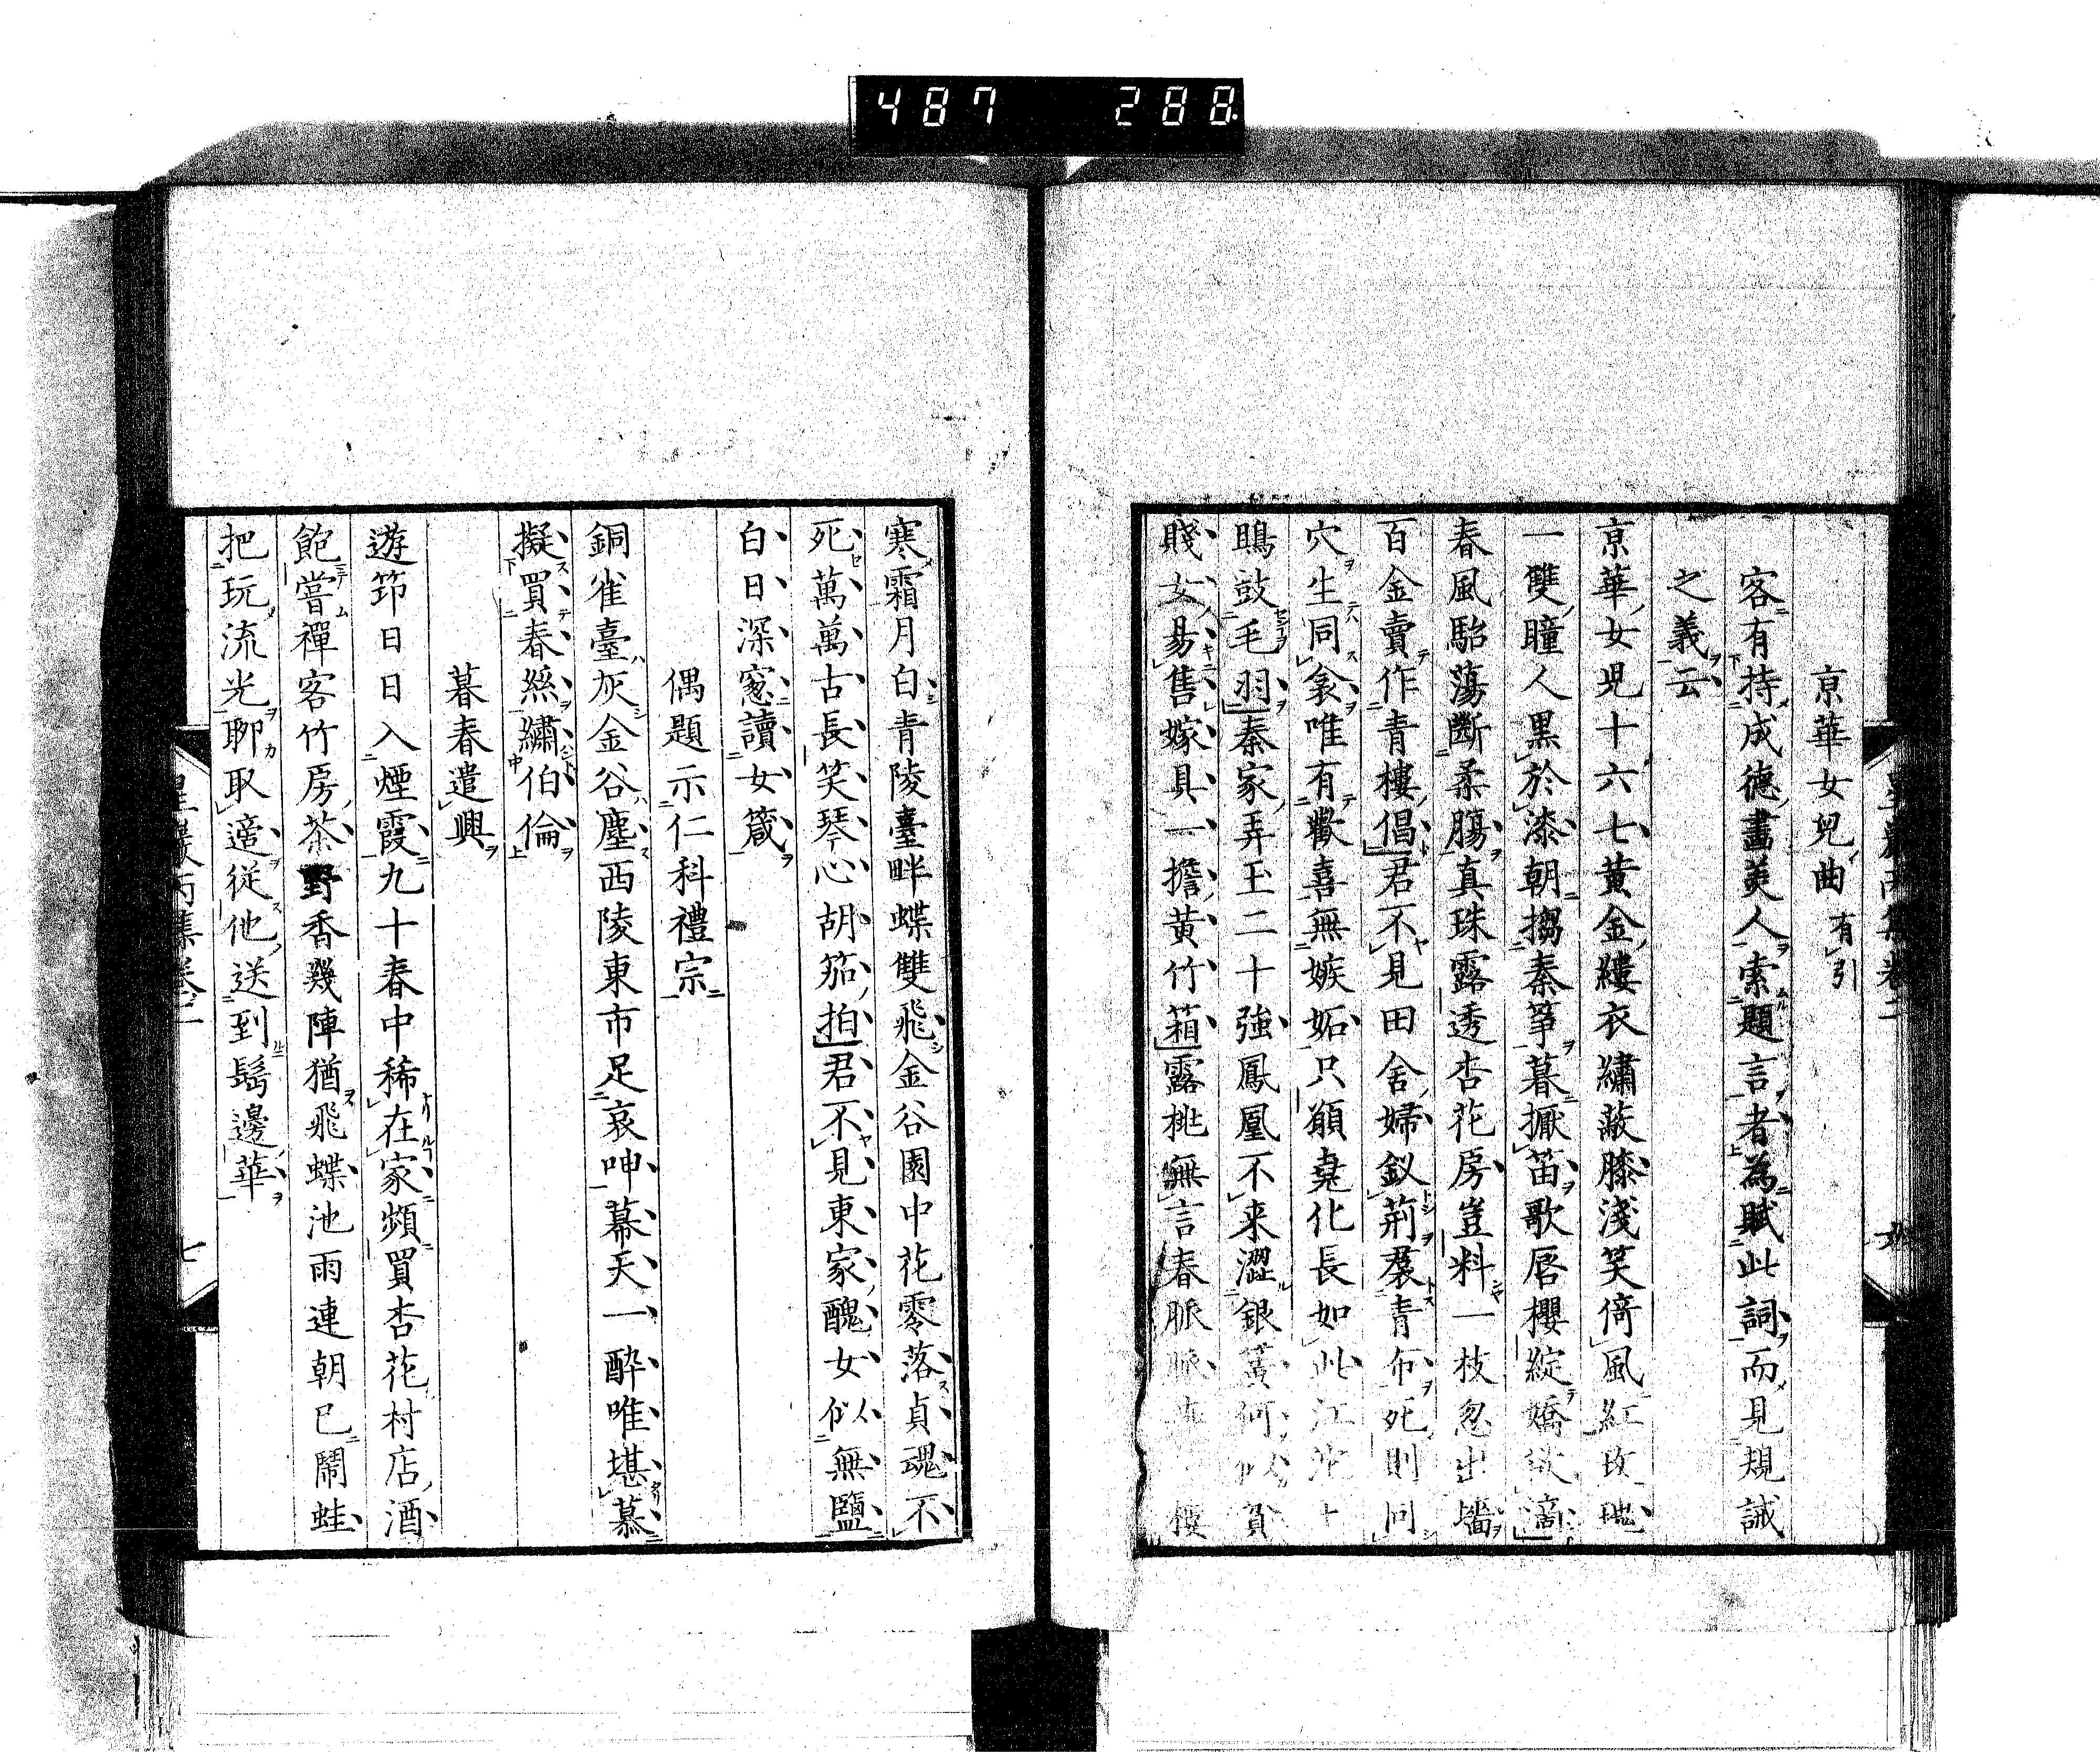 487 288
京華女兒曲有引
客有持成德畫美人索題言者為賦此詞而見規誡
之義云
京華女兒十六七黄金縷衣繡蔽膝淺笑倚風紅玫瑰
一雙瞳人黒於漆朝搊秦筝暮擫笛歌唇櫻綻嬌欲滴
春風駘蕩斷柔腸真珠露透杏花房豈料一枝忽出墻
百金賣作青樓倡君不見田舍婦釵荊裙青布死則同
穴生同衾唯有歡喜無嫉妬只願堯化長如此江沱
鴟鼓毛羽秦家弄玉二十強鳳凰不来澀銀簧何似貧
賤女易售嫁具一擔黄竹箱露桃無言春脈脈 樓
寒霜月白青陵臺畔蝶雙飛金谷園中花零落貞魂不
死萬萬古長笑琴心胡笳拍君不見東家醜女似無鹽
白日深窓讀女箴
偶題示仁科禮宗
銅雀臺灰金谷塵西陵東市足哀呻幕天一醉唯堪慕
擬買春絲繡伯倫
暮春遣興
遊笻日日入煙霞九十春中稀在家頻買杏花村店酒
飽嘗禪客竹房茶野香幾陣猶飛蝶池雨連朝已鬧蛙
把玩流光聊取適從他送到鬢邊華
七